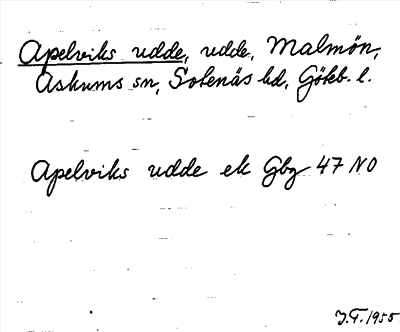 Apelviks udde, udde, Malmön,
Askums sn, Sotenäs hd, Göteb. l.
Apelviks udde ek Gbg 47 NO
J.T. 1955